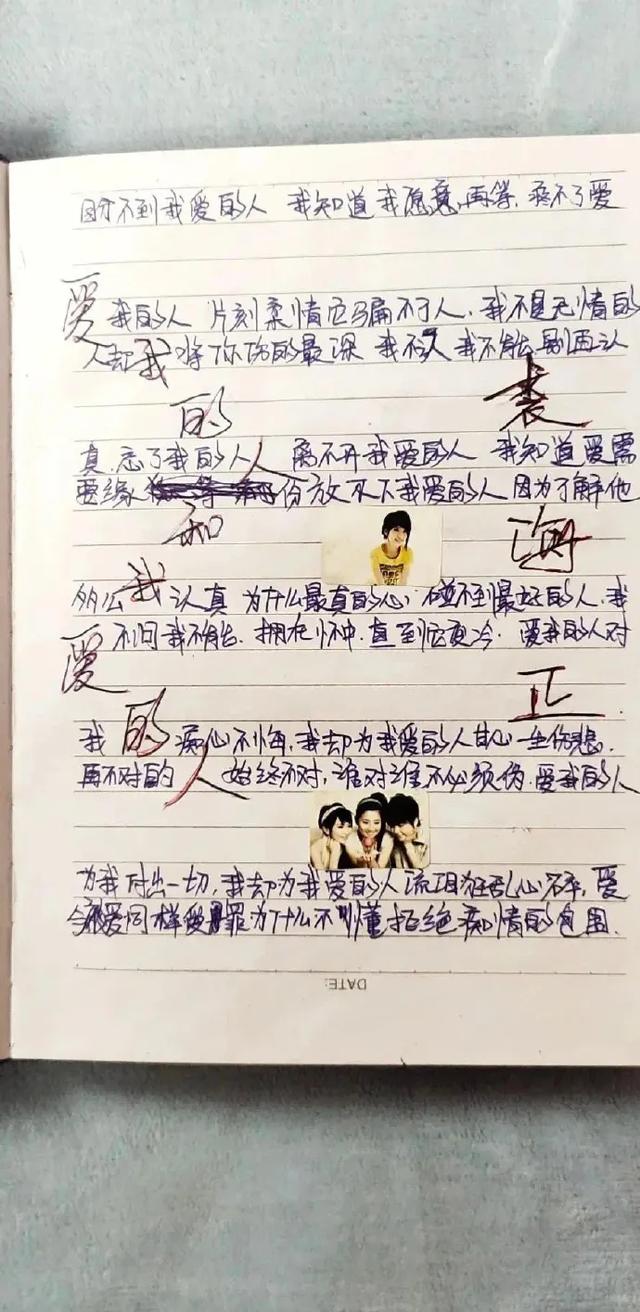 盼不到我爱的人 我知道我愿意再等,疼不了爱
我的人 片刻柔情它骗不了人,我不是无情的
人却将你伤的最深 我不 我不能,别再认
真,忘了我的人 离不开我爱的人 我知道爱需
要缘份放不下我爱的人因为了解他
多么认真 为什么最真的心,碰不到最好的人,我
不问我不能,拥在怀中,直到它变冷,爱我的人对
我痴心不悔,我却为我爱的人甘心一生伤悲.
再不对的始终不对,谁对谁不必须伪.爱我的人
为我付出一切,我却为我爱的人流泪狂乱心碎,爱
爱同样受罪为什么不懂拒绝痴情的包围.
爱我的人和我爱的人
裘海正
DATE: